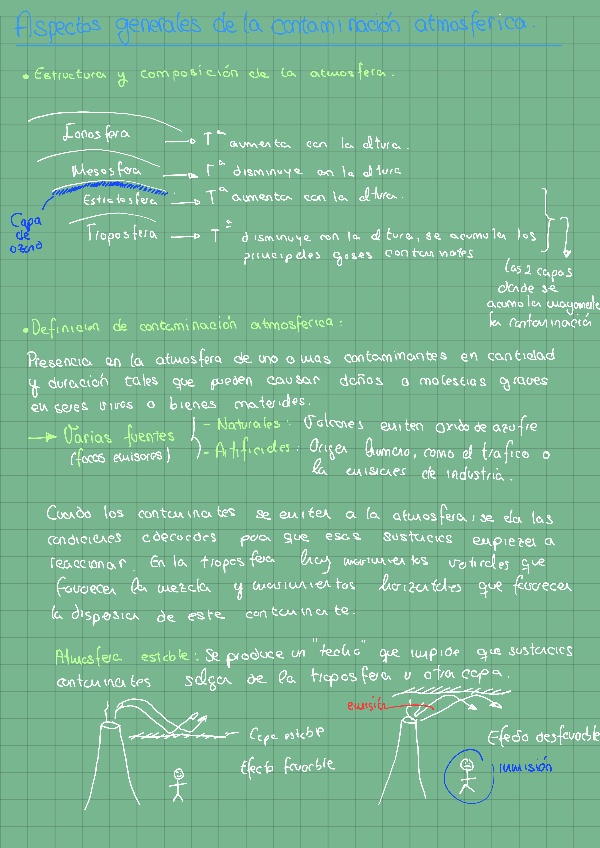 Aspectos generales de la contaminación atmosferica.
• Estructura y composición de la atmosfera.
Ionosfera → Tª aumenta con la altura.
Mesosfera → Tª disminuye con la altura
Estratosfera → Tª aumenta con la altura.
Capa de ozono
Troposfera → Tª disminuye con la altura, se acumulan los
principales gases contaminantes
las 2 capas
donde se
acumula mayormente
la contaminación
• Definicion de contaminación atmosferica:
Presencia en la atmosfera de uno o mas contaminantes en cantidad
y duración tales que pueden causar daños o molestias graves
en seres vivos o bienes materiales.
→ Varias fuentes
(focos emisores)
- Naturales: Volcanes emiten oxido de azufre
- Artificiales: Origen humano, como el trafico o
la emisiones de industria.
Cuando los contaminantes se emiten a la atmosfera, se da las
condiciones adecuadas para que esas sustancias empiezen a
reaccionar. En la troposfera hay movimientos verticales que
favorecen la mezcla y movimientos horizontales que favorecen
la disposicia de este contaminante.
Atmosfera estable: Se produce un "techo" que impide que sustancias
contaminates salgan de la troposfera u otra capa.
Capa estable
Efecto favorable
emisión
Efecto desfavorable
inmisión